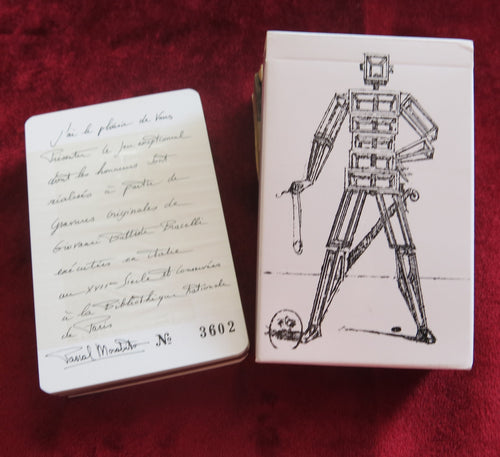 J'ai le plaisir de Vous
Présenter le Jeu exceptionnel
dont les honneurs sont
réalisés à partir de
gravures originales de
Giovanni Battista Bracelli
exécutées en italie
au XVIIème Siècle et conservées
à la Bibliothèque Nationale
de Paris
Pascal
N° 3602